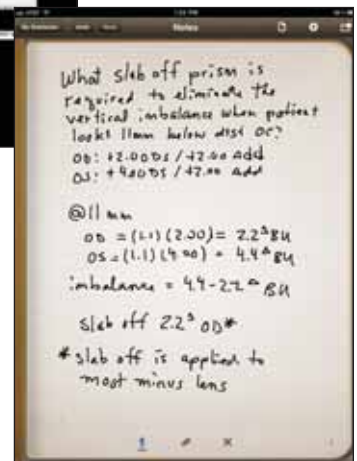 Notes
What slab off prism is
required to eliminate the
vertical imbalance when patient
looks 11mm below dist OC?
OD: +2.00DS / +2.00 Add
OS: +4.00DS / +2.00 Add
@11mm
OD = (1.1)(2.00) = 2.2Δ BU
OS = (1.1)(4.00) = 4.4Δ BU
imbalance = 4.4-2.2Δ BU
Slab off 2.2Δ OD*
*slab off is applied to
most minus lens